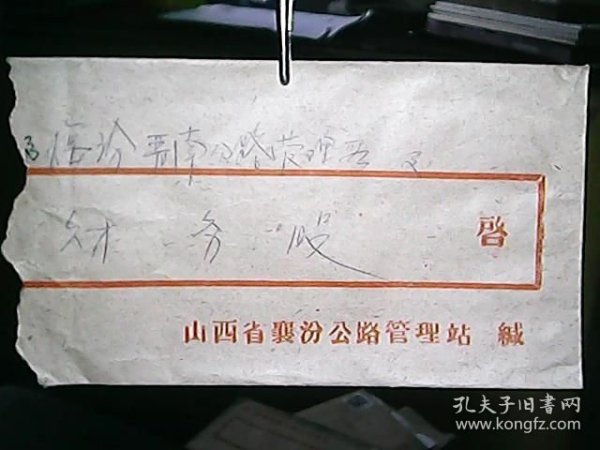 临汾晋南公路管理
财务股 啓
山西省襄汾公路管理站 缄
孔夫子旧书网
www.kongfz.com